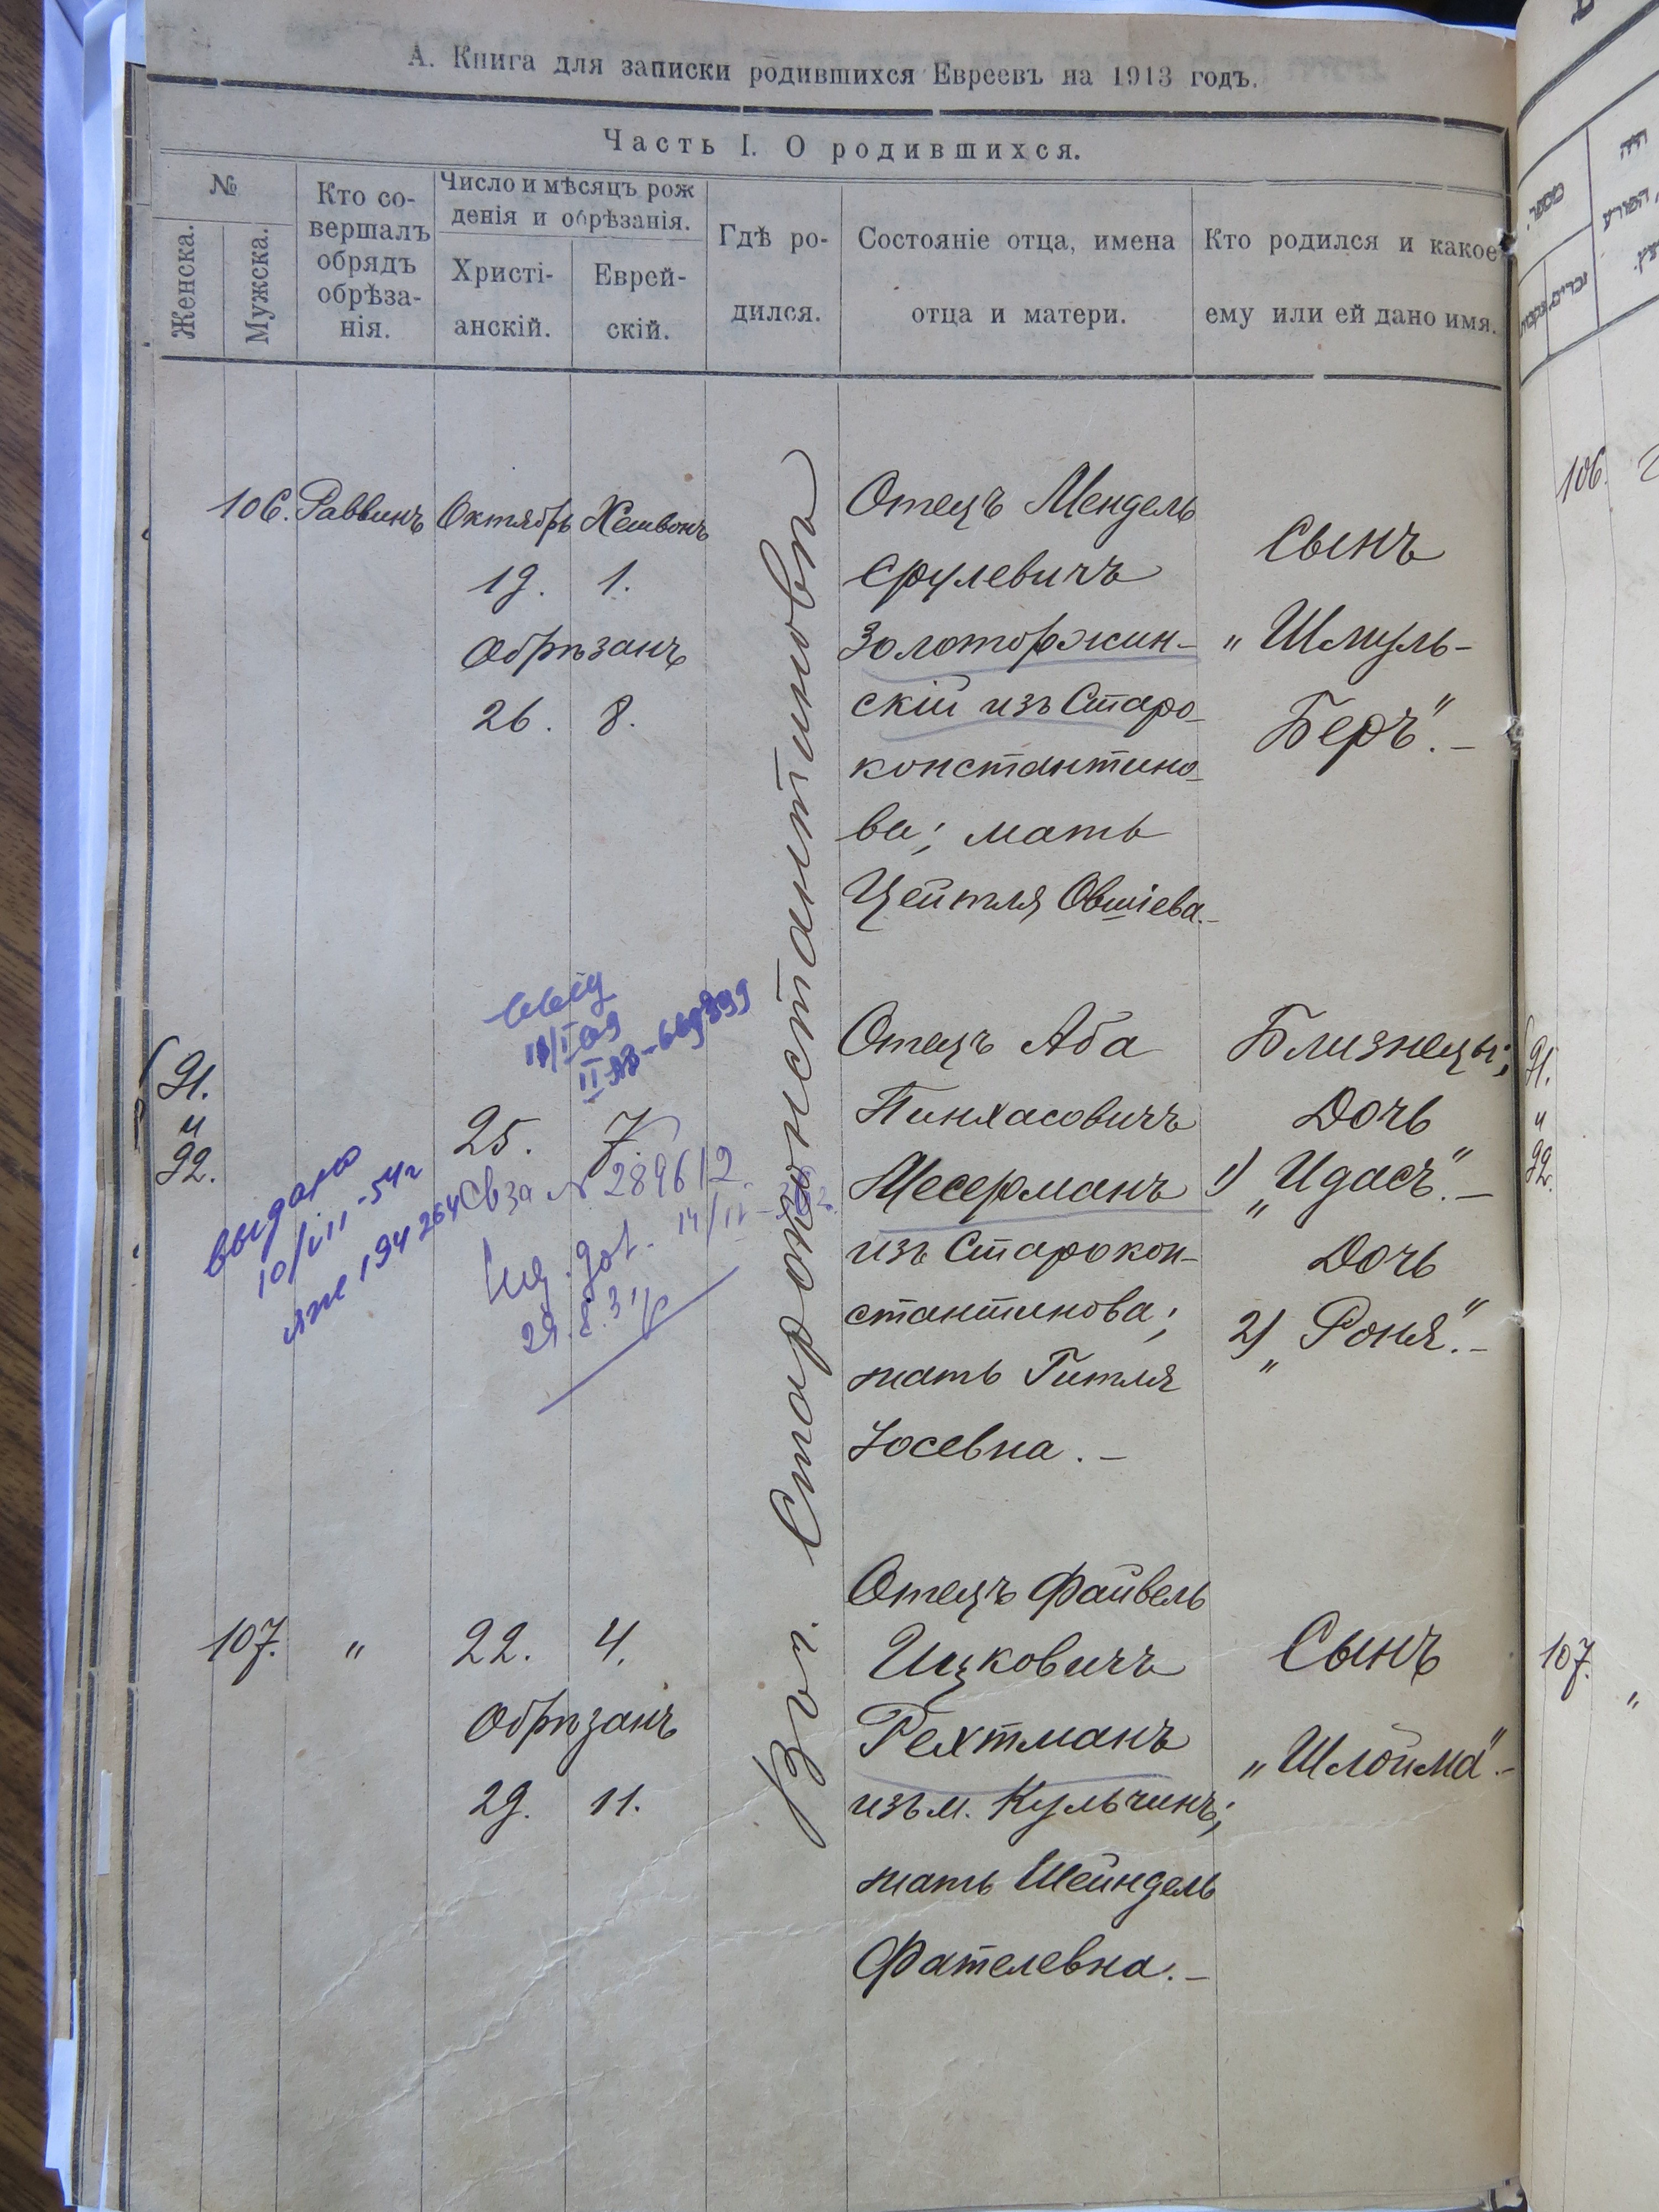 А. Книга для записки родившихся Евреевъ на 1913 годъ.
Часть I. О родившихся.
№
Женска.
Мужска.
Кто со-
вершалъ
обрядъ
обрѣза-
нія.
Число и мѣсяцъ рож
денія и обрѣзанія.
Христі-
анскій.
Еврей-
скій.
Гдѣ ро-
дился.
Состояніе отца, имена
отца и матери.
Кто родился и какое
ему или ей дано имя.
106. Раввинъ Октябрь Хешвонъ
19. 1.
Обрѣзанъ
26. 8.
Отецъ Мендель
Срулевичъ
Золоторжин-
скій изъ Старо-
константино-
ва; мать
Цейтля Овшіева.-
Сынъ
„Шмуль-
Беръ“.-
Въ г. Староконстантиновѣ
91.
и
92.
25. 7.
выдано
10/VII-54г
194264
Св за № 289612.
29.8.31
Отецъ Аба
Пинхасовичъ
Месерманъ
изъ Старокон-
стантинова;
мать Гитля
Іосевна.-
Близнецы;
Дочь
1) „Идасъ“.-
Дочь
2) „Роня“.-
107. " 22. 4.
Обрѣзанъ
29. 11.
Отецъ Файвель
Ицковичъ
Рехтманъ
изъ м. Кульчинъ;
мать Шейндель
Фателевна.-
Сынъ
„Шлойма“.-
106.
91.
и
92.
107.
"